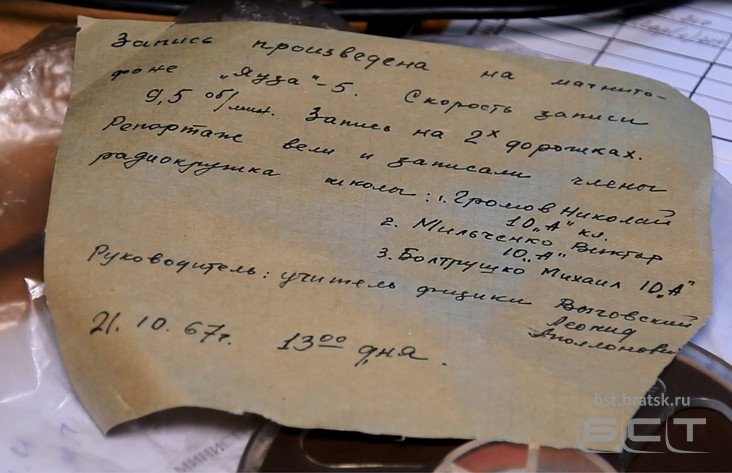 Запись произведена на магнито-
фоне „Яуза"-5. Скорость записи
9,5 об/мин. Запись на 2х дорожках.
Репортаж вели и записали члены
радиокружка школы: 1. Громов Николай
10 „А" кл.
2. Мильченко Виктор
10 „А"
3. Болтрушко Михаил 10 „А"
Руководитель: учитель физики Выговский
Леонид
Аполлонович
21. 10. 67г. 13 00 дня.
bst.bratsk.ru